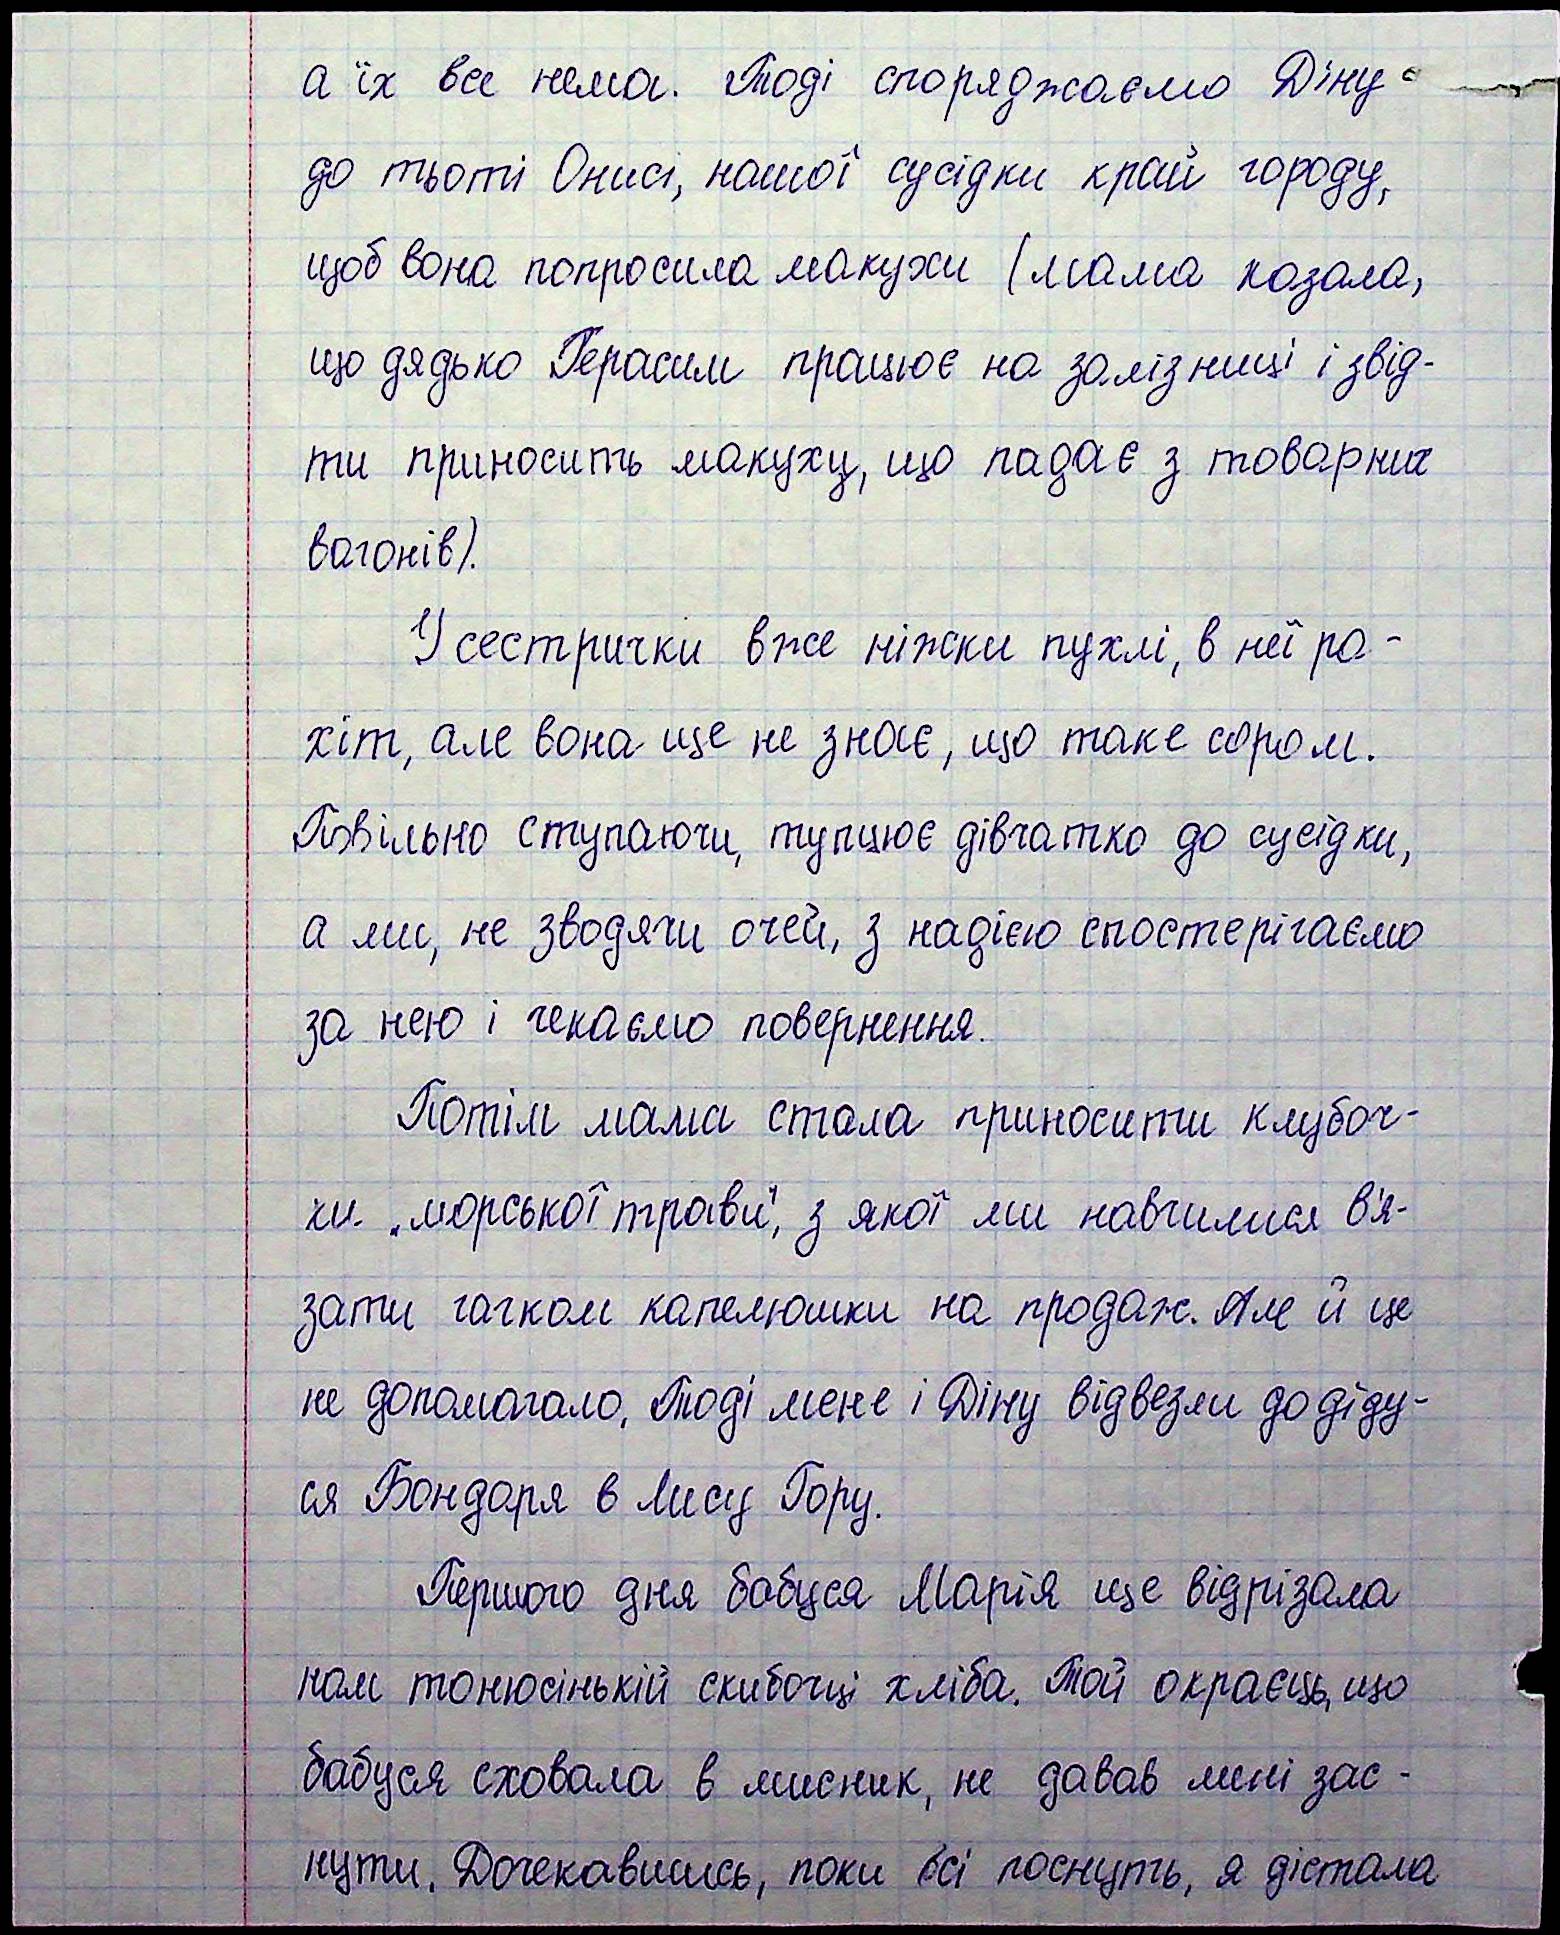 а їх все нема. Тоді споряджаємо Діну
до тьоті Онисі, нашої сусідки край городу,
щоб вона попросила макухи (мама казала,
що дядько Герасим працює на залізниці і звід-
ти приносить макуху, що падає з товарних
вагонів).
У сестрички вже ніжки пухлі, в неї ра-
хіт, але вона ще не знає, що таке сором.
Повільно ступаючи, тупцює дівчатко до сусідки,
а ми, не зводячи очей, з надією спостерігаємо
за нею і чекаємо повернення.
Потім мама стала приносити клубоч-
ки „морської трави", з якої ми навчилися в'я-
зати гачком капелюшки на продаж. Але й це
не допомагало. Тоді мене і Діну відвезли до діду-
ся Бондаря в Лису Гору.
Першого дня бабуся Марія ще відрізала
нам тонюсінькій скибочці хліба. Той окраєць, що
бабуся сховала в мисник, не давав мені зас-
нути. Дочекавшись, поки всі поснуть, я дістала